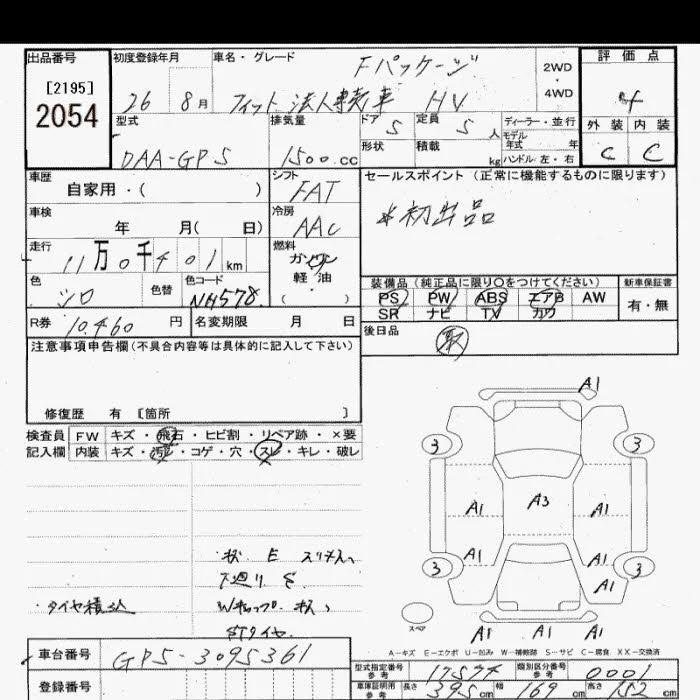 出品番号
[2195]
2054
初度登録年月
26 8月
車名・グレード
Fパッケージ
フィット 法人車輌車 HV
2WD
・
4WD
評価点
4
外装 内装
C C
型式
DAA-GP5
排気量
1500.cc
ドア 5
定員 5 人
形状
積載 kg
ディーラー・並行
モデル
年式 年
ハンドル 左・右
車歴
自家用・( )
シフト
FAT
セールスポイント (正常に機能するものに限ります)
*初出品
車検
年 月( 日)
冷房
AAC
走行
11万0千401km
燃料
ガソリン
軽・油
( )
色
シロ
色替
色コード
NH578
装備品 (純正品に限り○をつけてください)
PS PW ABS エアB AW
SR ナビ TV カワ
新車保証書
有・無
R券 10460円
名変期限 月 日
後日品
取
注意事項申告欄(不具合内容等は具体的に記入して下さい)
修復歴 有 [箇所 ]
検査員
記入欄
FW キズ・飛石・ヒビ割・リペア跡・×要
内装 キズ・汚レ・コゲ・穴・スレ・キレ・破レ
E スリキズ
下廻りS
タイヤ積込
Wキャップ
STタイヤ
A1
3 3
A1 A3 A1
A1 A1
3 3
A1
A1 A1
スペア
A−キズ E−エクボ U−凹み W−補修跡 S−サビ C−腐食 XX−交換済
車台番号
GP5-3095361
登録番号
型式指定番号
参考
17574
類別区分番号
参考
0001
車庫証明用
参考
長さ 395cm 幅 169cm 高さ 152cm